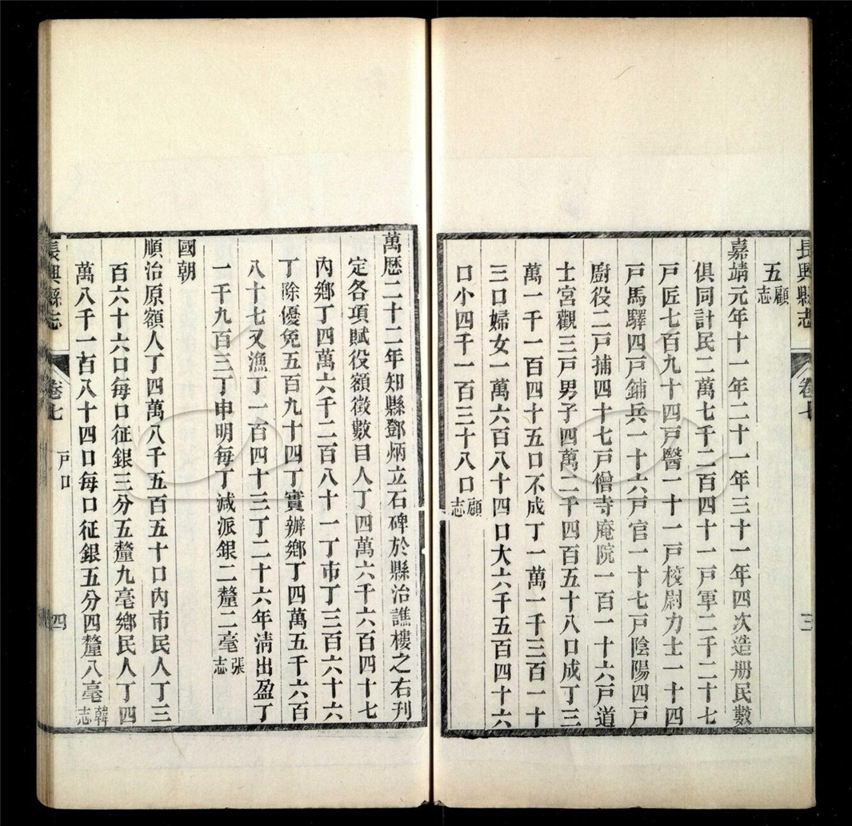 長興縣志
卷七
三
五顧志
嘉靖元年十一年二十一年三十一年四次造册民數
俱同計民二萬七千二百四十一戸軍二千二十七
戸匠七百九十四戸醫一十一戸校尉力士一十四
戸馬驛四戸鋪兵一十六戸官一十七戸陰陽四戸
廚役二戸捕四十七戸僧寺庵院一百一十六戸道
士宮觀三戸男子四萬二千四百五十八口成丁三
萬一千一百四十五口不成丁一萬一千三百一十
三口婦女一萬六百八十四口大六千五百四十六
口小四千一百三十八口顧志
萬歴二十二年知縣鄧炳立石碑於縣治譙樓之右刋
定各項賦役額徵數目人丁四萬六千六百四十七
內鄉丁四萬六千二百八十一丁市丁三百六十六
丁除優免五百九十四丁實辦鄉丁四萬五千六百
八十七又漁丁一百四十三丁二十六年清出盈丁
一千九百三丁申明每丁減派銀二釐二毫張志
國朝
順治原額人丁四萬八千五百五十口內市民人丁三
百六十六口每口征銀三分五釐九毫鄉民人丁四
萬八千一百八十四口每口征銀五分四釐八毫韓志
長興縣志
卷七
戸口
四